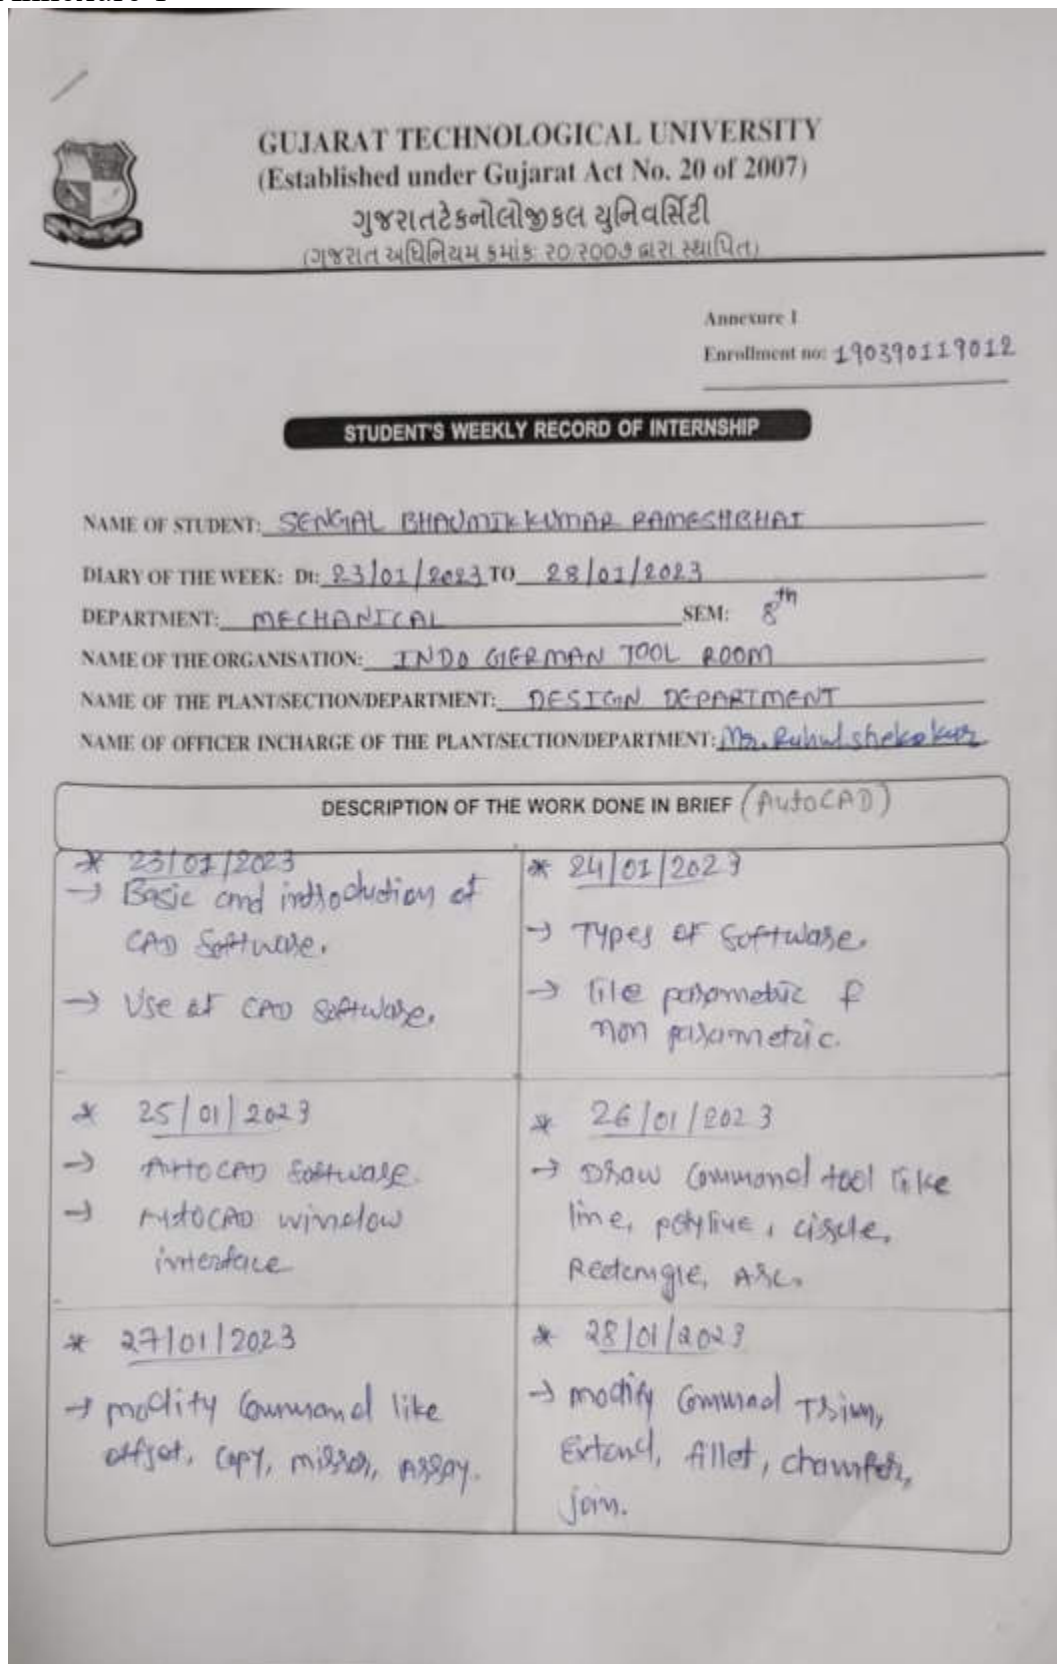 GUJARAT TECHNOLOGICAL UNIVERSITY
(Established under Gujarat Act No. 20 of 2007)
ગુજરાતટેકનોલોજીકલ યુનિવર્સિટી
(ગુજરાત અધિનિયમ ક્રમાંક: ૨૦ ૨૦૦૭ દ્વારા સ્થાપિત)
Annexure 1
Enrollment no: 190390119012
STUDENT'S WEEKLY RECORD OF INTERNSHIP
NAME OF STUDENT: SENGAL BHAUMIKKUMAR RAMESHBHAI
DIARY OF THE WEEK: Dt: 23/01/2023 TO 28/01/2023
DEPARTMENT: MECHANICAL SEM: 8th
NAME OF THE ORGANISATION: INDO GERMAN TOOL ROOM
NAME OF THE PLANT/SECTION/DEPARTMENT: DESIGN DEPARTMENT
NAME OF OFFICER INCHARGE OF THE PLANT/SECTION/DEPARTMENT: Mr.
DESCRIPTION OF THE WORK DONE IN BRIEF (AutoCAD)
* 23/01/2023
→ Basic and introduction of
CAD Software.
→ Use of CAD Software.
* 24/01/2023
→ Types of Software.
→ parametric &
non parametric.
* 25/01/2023
→ AutoCAD Software.
→ AutoCAD window
interface
* 26/01/2023
→ Draw Command tool like
line, polyline, circle,
Rectangle, Arc.
* 27/01/2023
→ modify Command like
offset, copy, mirror, Array.
* 28/01/2023
→ modify Commad Trim,
Extend, fillet, chamfer,
join.